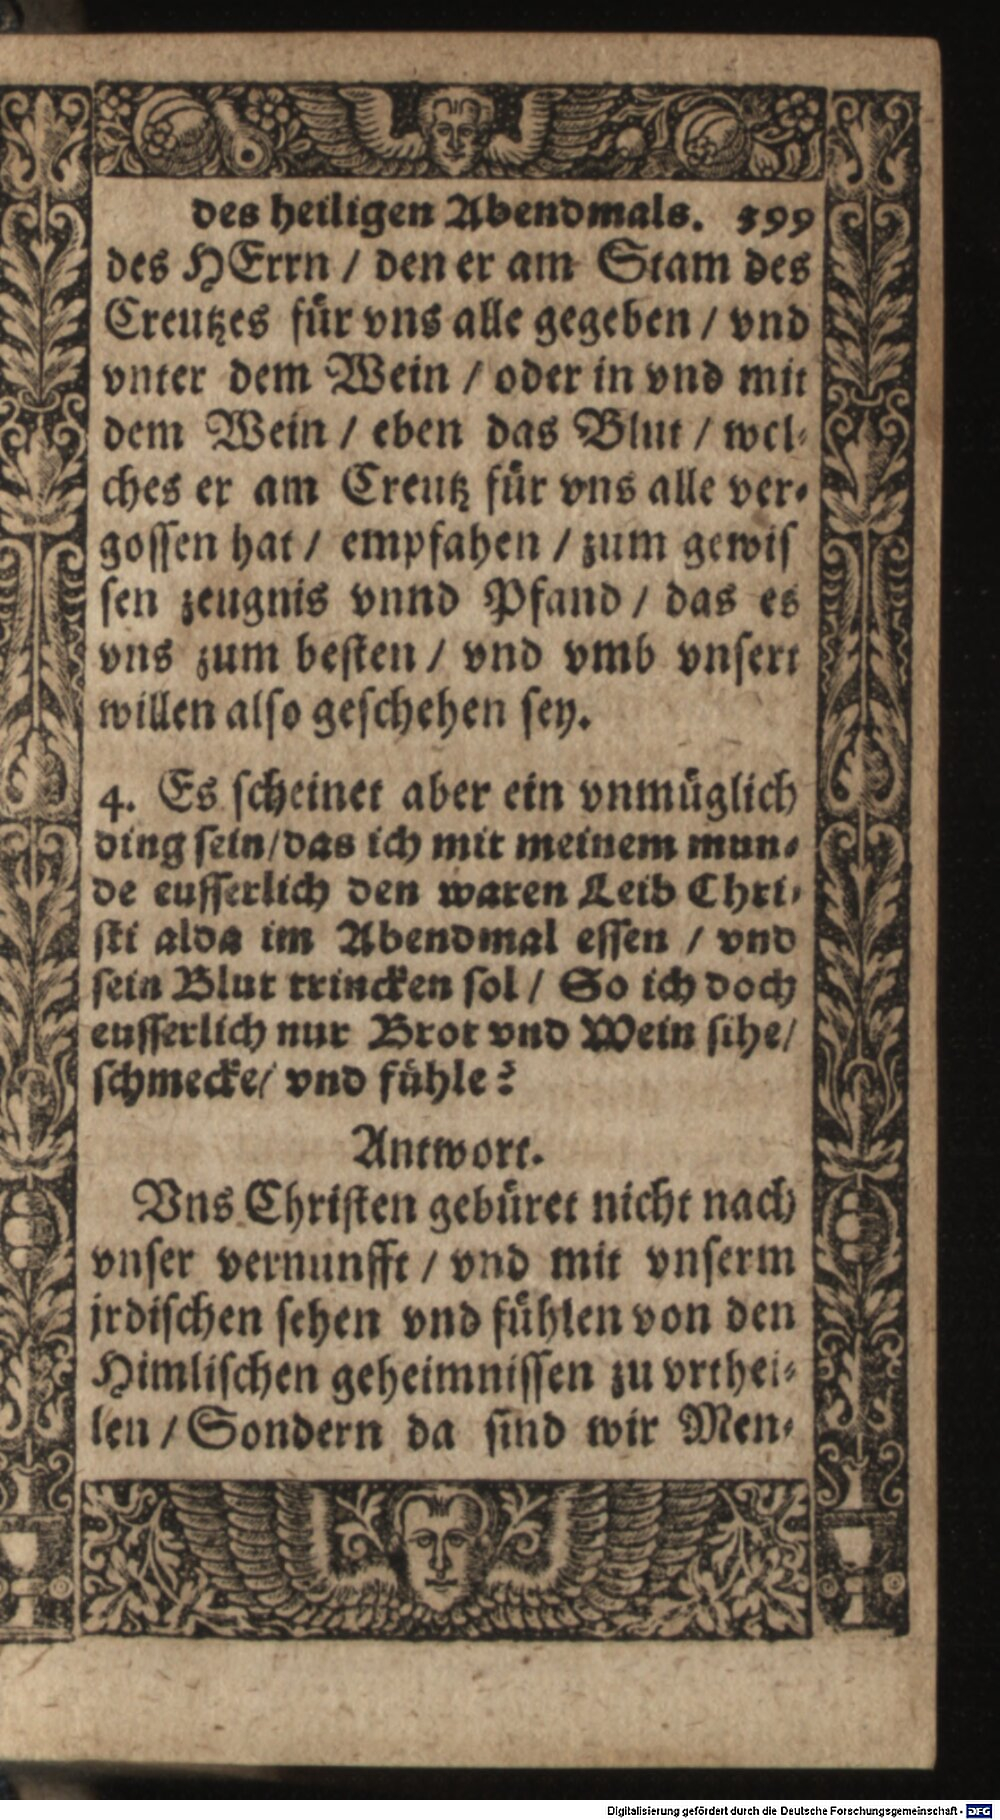 des heiligen Abendmals. 599
des HErrn / den er am Stam des
Creutzes für vns alle gegeben / vnd
vnter dem Wein / oder in vnd mit
dem Wein / eben das Blut / wel-
ches er am Creutz für vns alle ver-
gossen hat / empfahen / zum gewis
sen zeugnis vnnd Pfand / das es
vns zum besten / vnd vmb vnsert
willen also geschehen sey.
4. Es scheinet aber ein vnmüglich
ding sein/das ich mit meinem mun-
de eusserlich den waren Leib Chri-
sti alda im Abendmal essen / vnd
sein Blut trincken sol / So ich doch
eusserlich nur Brot vnd Wein sihe/
schmecke/ vnd fühle?
Antwort.
Vns Christen gebüret nicht nach
vnser vernunfft / vnd mit vnserm
jrdischen sehen vnd fühlen von den
Himlischen geheimnissen zu vrthei-
len / Sondern da sind wir Men-
Digitalisierung gefördert durch die Deutsche Forschungsgemeinschaft - DFG